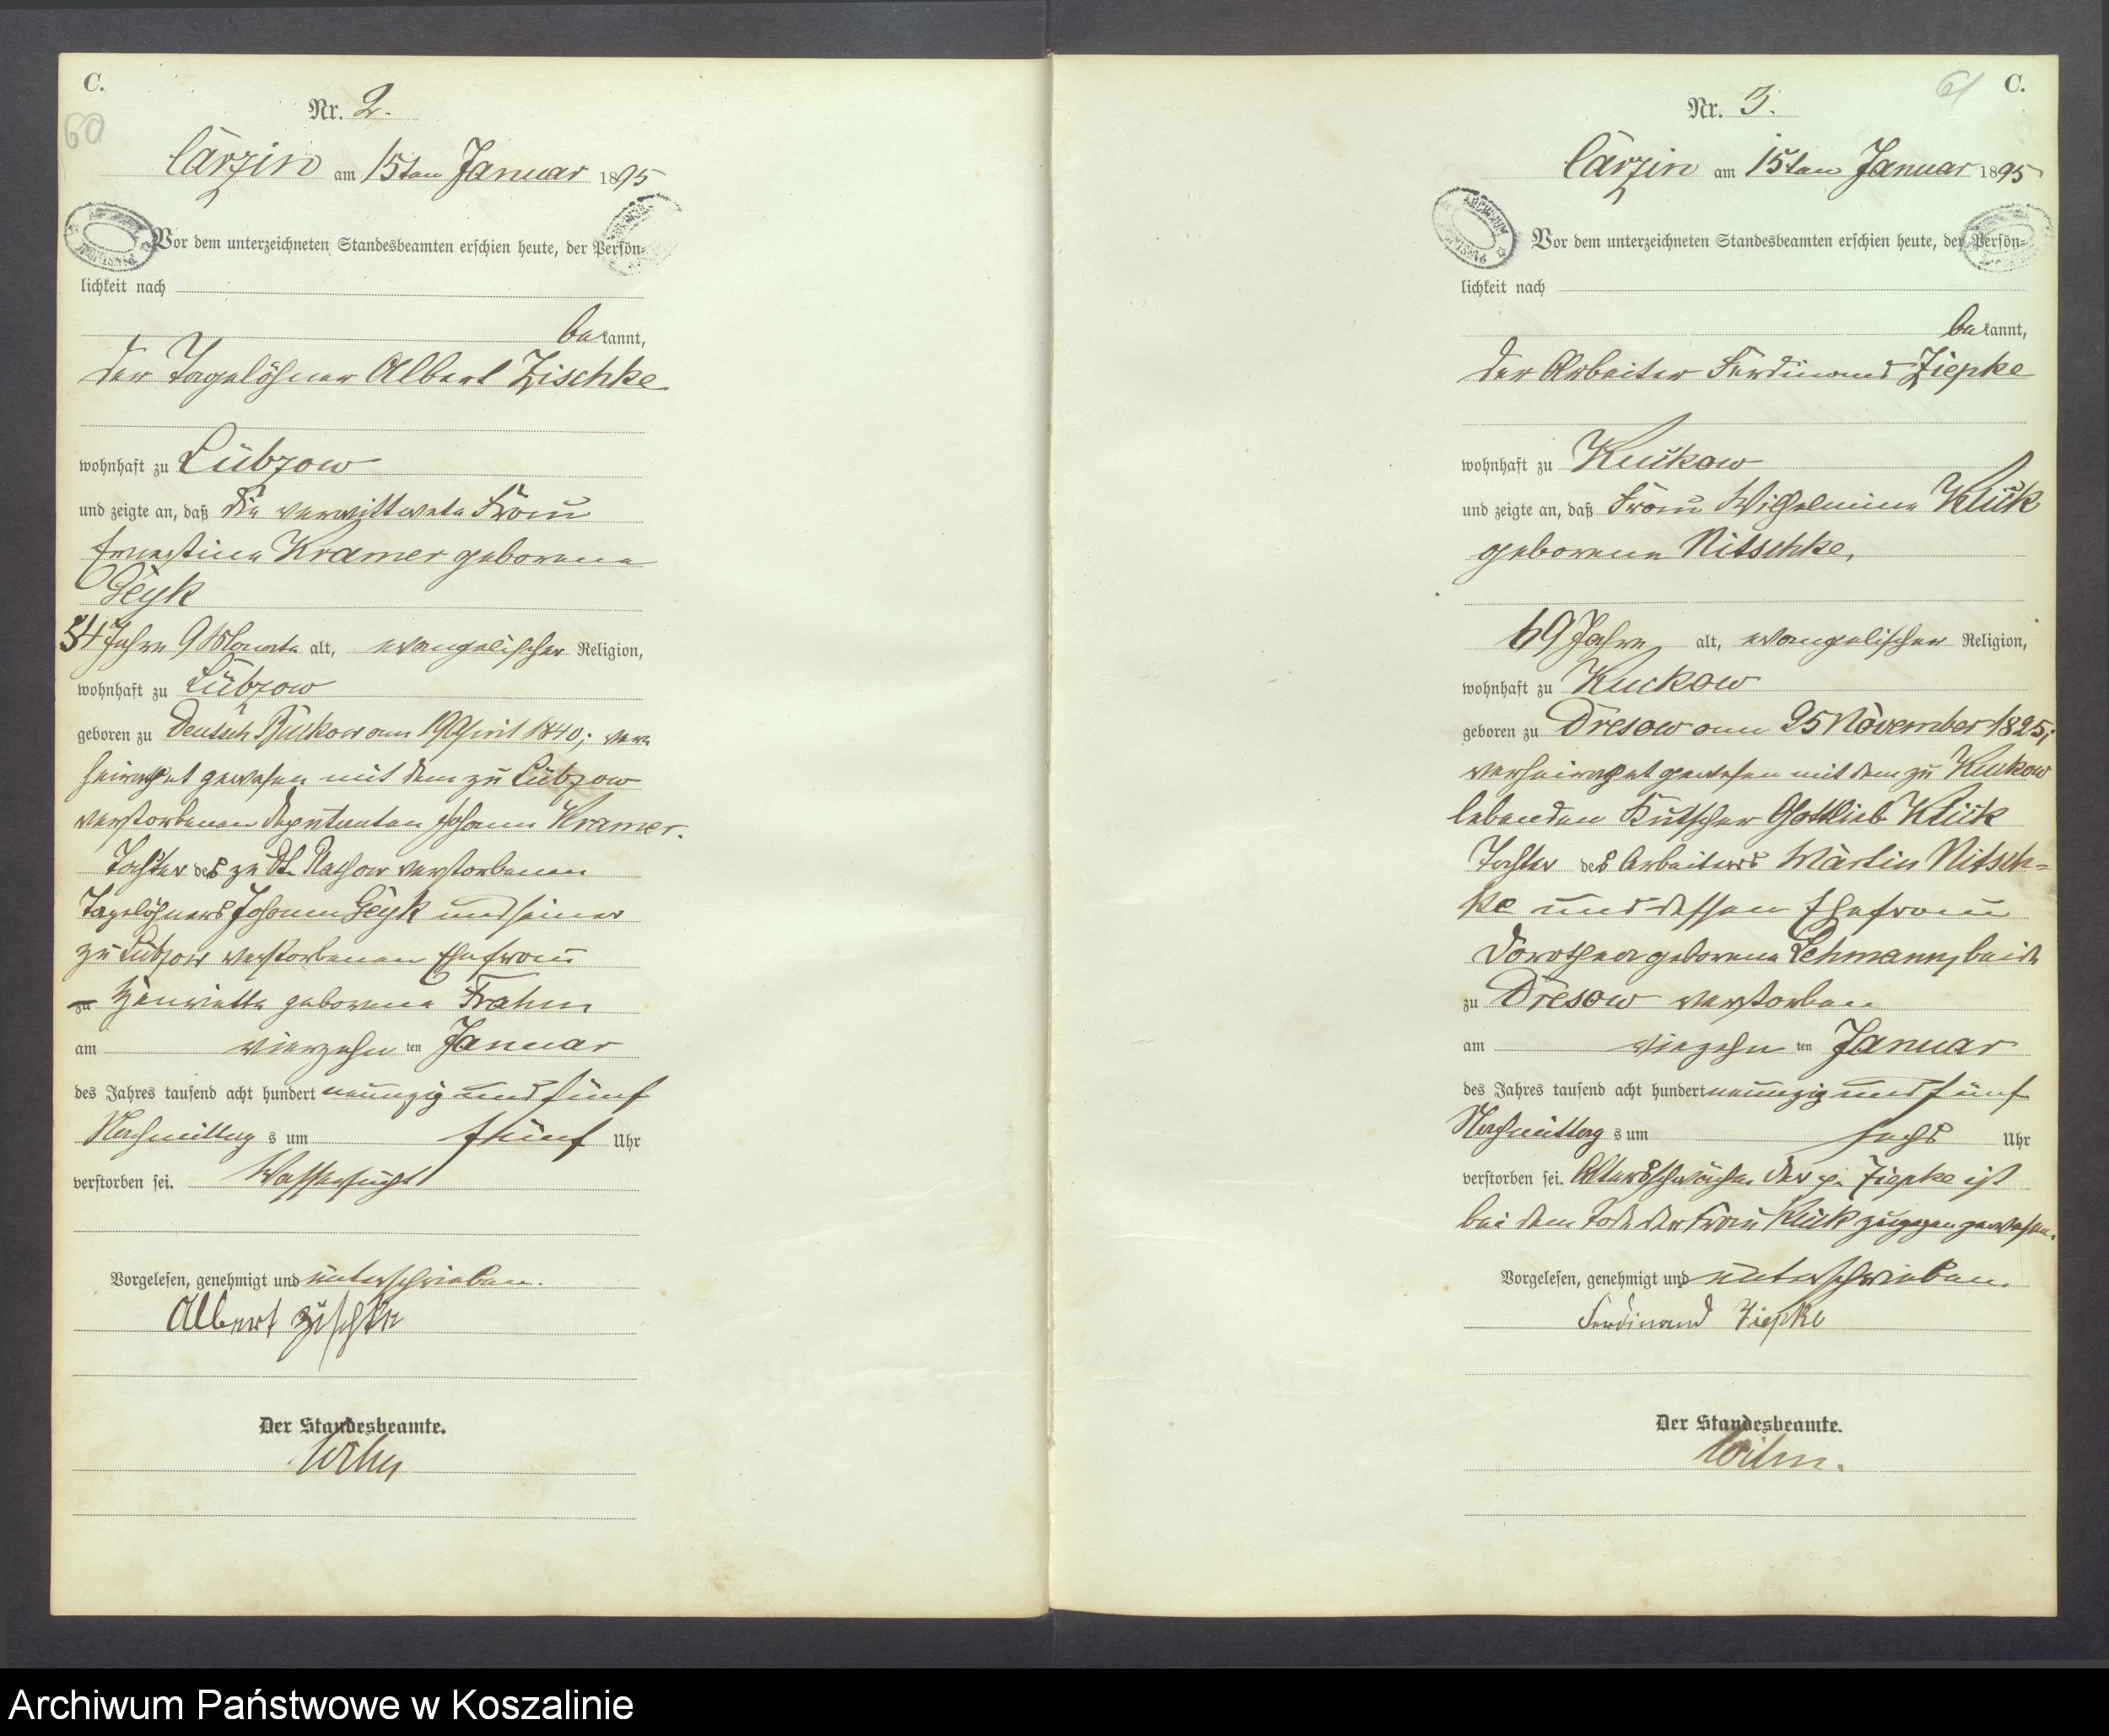 C.
60
Nr. 2.
Carzin am 15ten Januar 1895
Vor dem unterzeichneten Standesbeamten erschien heute, der Persön-
lichkeit nach
bekannt,
der Tagelöhner Albert Zischke
wohnhaft zu Lübzow
und zeigte an, daß die verwittwete Frau
Ernestine Kramer geborene
Geyk
54 Jahre 9 Monate alt, evangelischer Religion,
wohnhaft zu Lübzow
geboren zu Deutsch am April 1840; ver-
heirathet gewesen mit dem zu Lübzow
verstorbenen Deputanten Johann Kramer.
Tochter des zu verstorbenen
Tagelöhners Johann Geyk und seiner
zu Lübzow verstorbenen Ehefrau
zu Henriette geborene Frahm
am vierzehn ten Januar
des Jahres tausend acht hundert neunzig und fünf
Nachmittag s um fünf Uhr
verstorben sei. Wassersucht
Vorgelesen, genehmigt und unterschrieben.
Albert Zischke
Der Standesbeamte.
61
C.
Nr. 3.
Carzin am 15ten Januar 1895
ARCHIWUM
Vor dem unterzeichneten Standesbeamten erschien heute, der Persön-
lichkeit nach
bekannt,
der Arbeiter Ferdinand Ziepke
wohnhaft zu Kuckow
und zeigte an, daß Frau Wilhelmine Klück
geborene Nitschke,
69 Jahre alt, evangelischer Religion,
wohnhaft zu Kuckow
geboren zu Dresow am 25 November 1825;
verheirathet gewesen mit dem zu Kuckow
lebenden Kutscher Gottlieb Klück
Tochter des Arbeiters Martin Nitsch-
ke und dessen Ehefrau
Dorothea geborene Lehmann, beide
zu Dresow verstorben
am vierzehn ten Januar
des Jahres tausend acht hundert neunzig und fünf
Nachmittag s um sechs Uhr
verstorben sei. Altersschwäche. Der p. Ziepke ist
bei dem Tode der Frau Klück zugegen gewesen.
Vorgelesen, genehmigt und unterschrieben.
Ferdinand Ziepke
Der Standesbeamte.
Archiwum Państwowe w Koszalinie